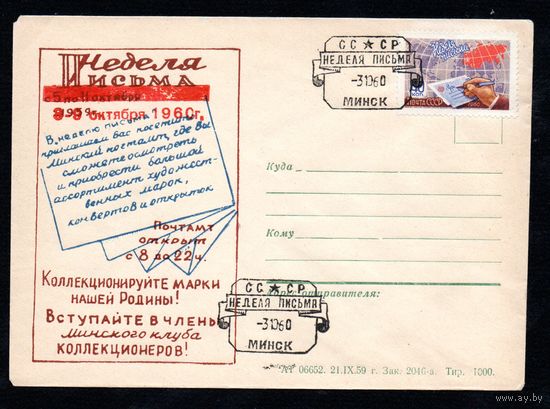 Неделя
Письма
с 5 по 11 октября
1959 г.
3-9 октября 1960г.
В неделю письма
приглашаем вас посетить
Минский почтамт, где вы
сможете осмотреть
и приобрести большой
ассортимент художест-
венных марок,
конвертов и открыток
Почтамт
открыт
с 8 до 22 ч.
Коллекционируйте марки
нашей Родины!
Вступайте в члены
Минского клуба
коллекционеров!
СС★СР
НЕДЕЛЯ ПИСЬМА
-31060
МИНСК
ПОЧТА СССР
Куда
Кому
отправителя:
СС★СР
НЕДЕЛЯ ПИСЬМА
-31060
МИНСК
АТ 06652. 21.IX.59 г. Зак. 2046-а. Тир. 1000.
www.ay.by